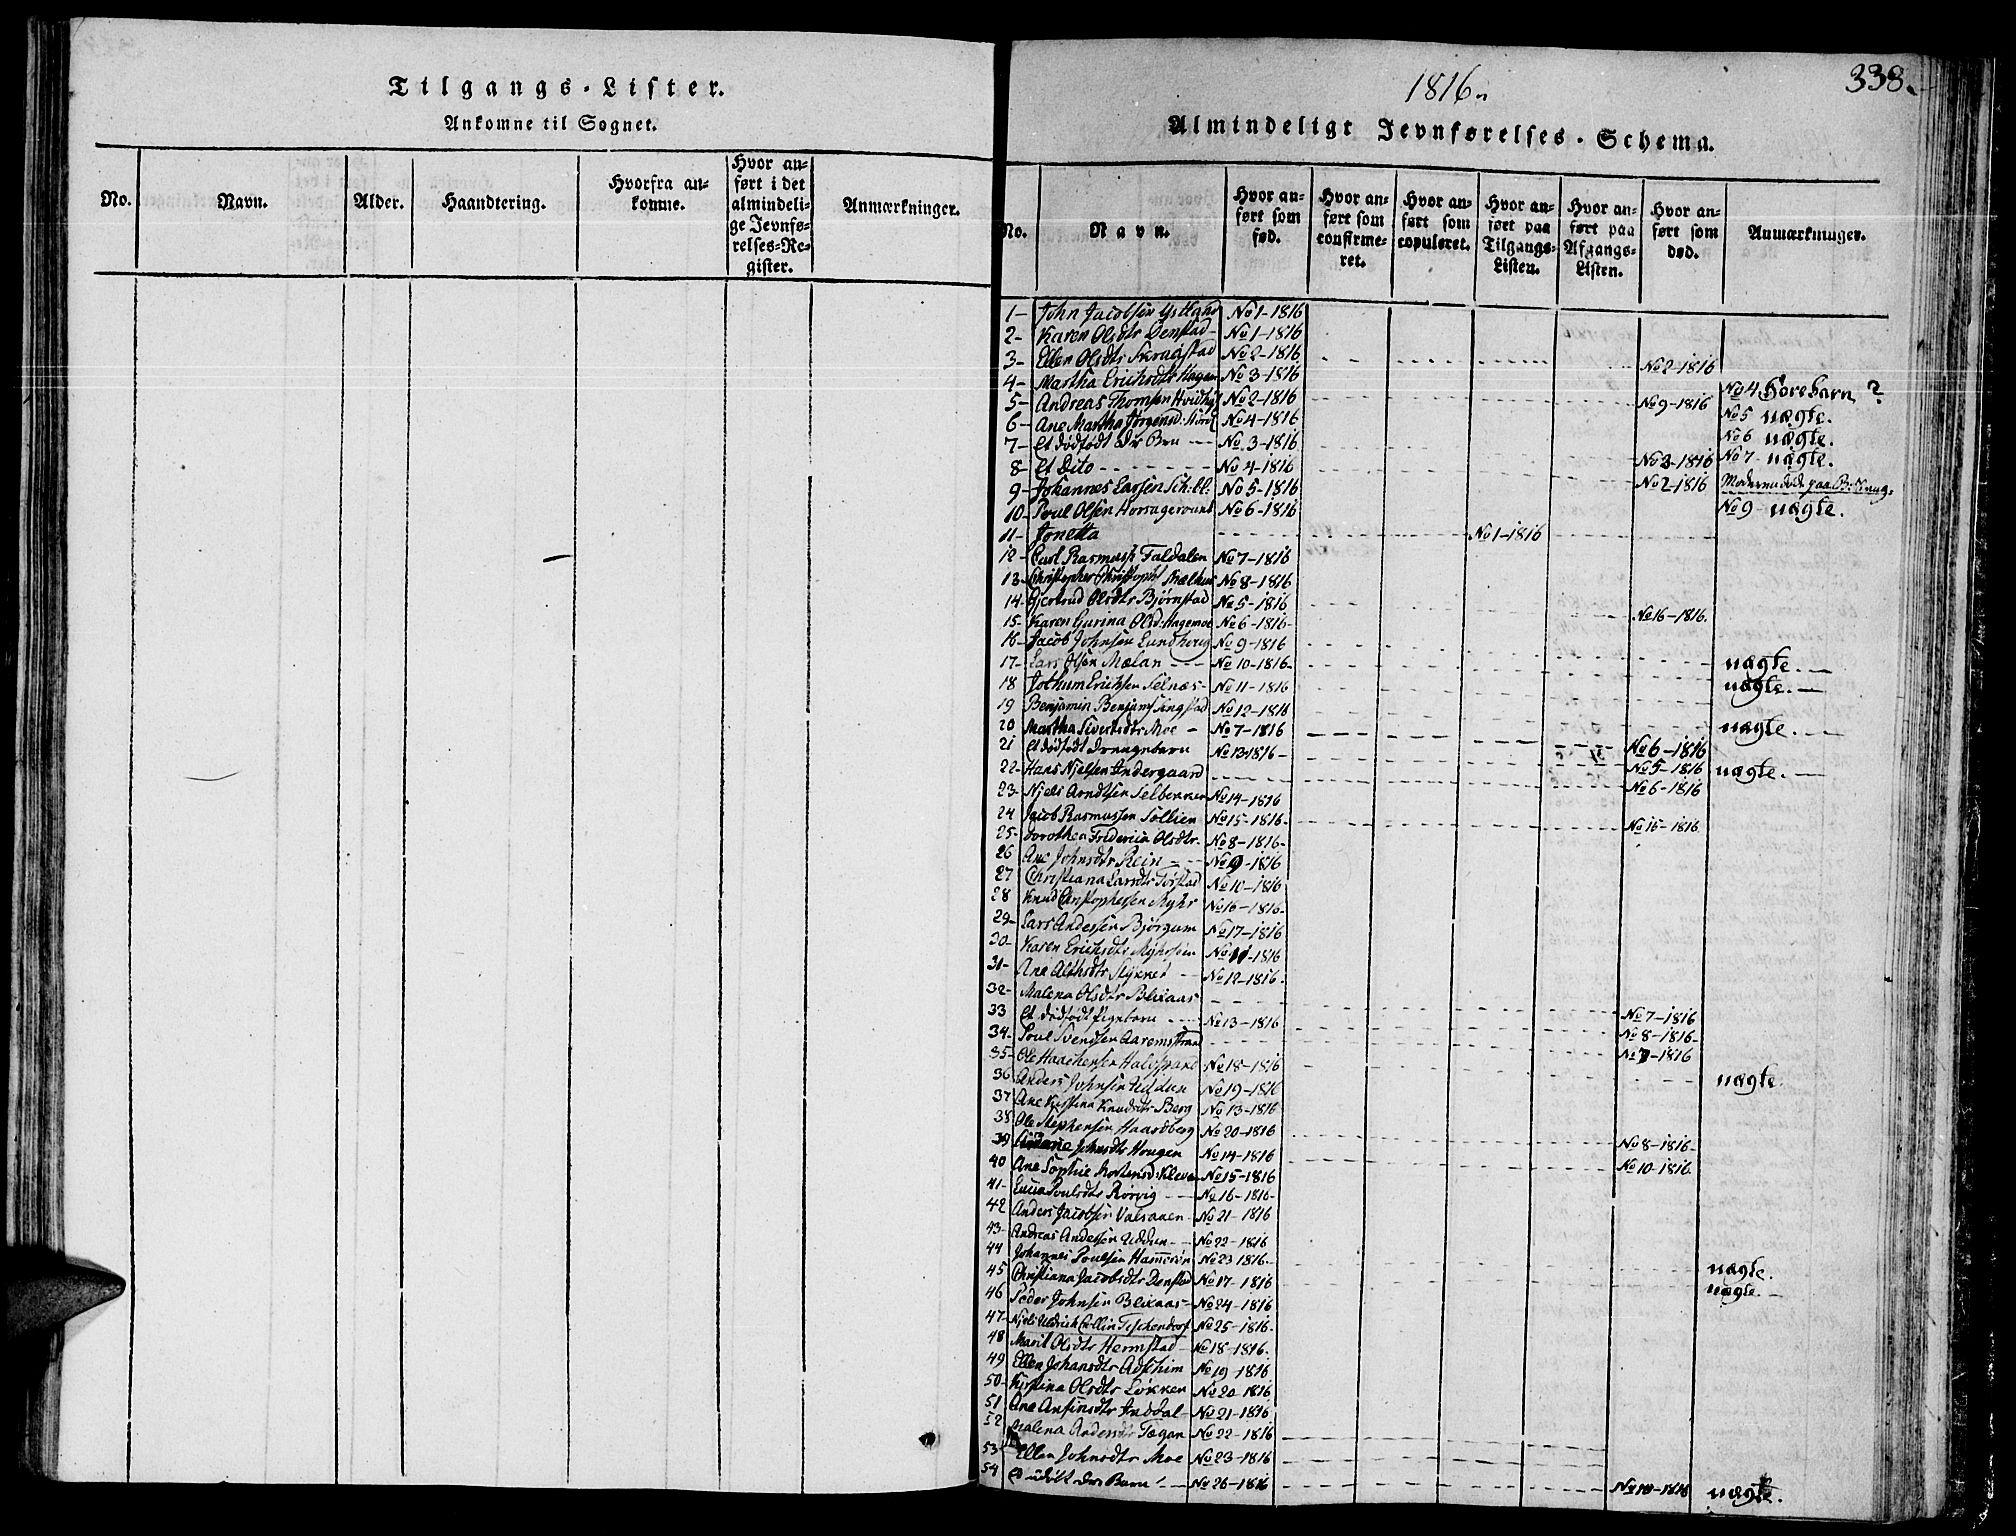 Tilgangs-Lister.
Ankomne til Sognet.
No. Navn. Alder. Haandtering. Hvorfra ankomne. Hvor anført i det almindelige Jevnførelses-Register. Anmærkninger.
1816.
338.
Almindeligt Jevnførelses-Schema.
No. Navn. Hvor anført som fød. Hvor anført som confirmeret. Hvor anført som copuleret. Hvor anført paa Tilgangs-Listen. Hvor anført paa Afgangs-Listen. Hvor anført som død. Anmærkninger.
1- John Jacobsen No 1-1816
2- Karen Olsdtr Denstad No 1-1816
3- Ellen Olsdtr Skragstad No 2-1816 No 2-1816
4- Martha Erichsdtr Hagen No 3-1816 No 4 Horebarn ?
5- Andreas Thomsen No 2-1816 No 9-1816 No 5 uægte.
6- Ane Martha Jørgensd: No 4-1816 No 6 uægte.
7- Et dødfødt Barn No 3-1816 No 7 uægte.
8- Et Dito No 4-1816 No 3-1816
9- Johannes Larsen No 5-1816 No 2-1816
10- Poul Olsen No 6-1816 No 9 uægte.
11- Jonetta No 1-1816
12- Carl Rasmush Faldalen No 7-1816
13- Christopher No 8-1816
14- Gjertrud Olsdtr Bjørnstad No 5-1816
15- Karen Gurina Olsd: No 6-1816 No 16-1816
16- Jacob Johnsen No 9-1816
17- Lars Olsen Mælan No 10-1816 uægte.
18 Jothum Erichsen Selnæs No 11-1816 uægte.
19 Benjamin No 12-1816
20 Martha Sivertsdtr Moe No 7-1816 uægte.
21 Et dødfødt Drengebarn No 13-1816 No 6-1816
22- Hans Njelsen Indergaard No 5-1816 uægte.
23- Njels Arndtsen Selbekken No 14-1816 No 6-1816
24 Jacob Rasmussen Sollien No 15-1816 No 15-1816
25- Dorothea Fredericia Olsdtr. No 8-1816
26 Ane Johnsdtr Rein No 9-1816
27 Christiana Larsdtr No 10-1816
28 Knud Christophersen Myhr No 16-1816
29- Lars Andersen Bjørgum No 17-1816
30- Karen Erichsdtr No 11-1816
31- Ane No 12-1816
32- Malena Olsdtr Blixaas No 7-1816
33 Et dødfødt Pigebarn No 13-1816 No 8-1816
34- Poul Svendsen No 7-1816
35- Ole Haachensen No 18-1816 uægte.
36 Anders Johnsen Uddun No 19-1816
37 Ane Kirstina Knudsdtr Berg No 13-1816
38 Ole Stephensen Haardberg No 20-1816 No 8-1816
39 Johnsdtr Hougen No 14-1816 No 10-1816
40 Ane Sophie Mortensd: No 15-1816
41- Lucia Poulsdtr Rørvig No 16-1816
42 Anders Jacobsen Valsaaen No 21-1816
43- Andreas Andersen Uddun No 22-1816
44 Johannes Poulsen No 23 1816 uægte.
45 Christiana Jacobsdtr Denstad No 17-1816 uægte.
46 Peder Johnsen Blixaas No 24-1816
47- Njels Uldrich Collin Tischendorf No 25-1816
48 Marit Olsdtr Hermstad No 18-1816
49 Ellen Johansdtr No 19-1816
50- Kirstina Olsdtr Løkken No 20-1816
51 Ane No 21-1816
52 Malena Andersdtr No 22-1816
53 Ellen Johnsdtr Moe No 23-1816
54 Barn No 26-1816 No 10-1816 uægte.